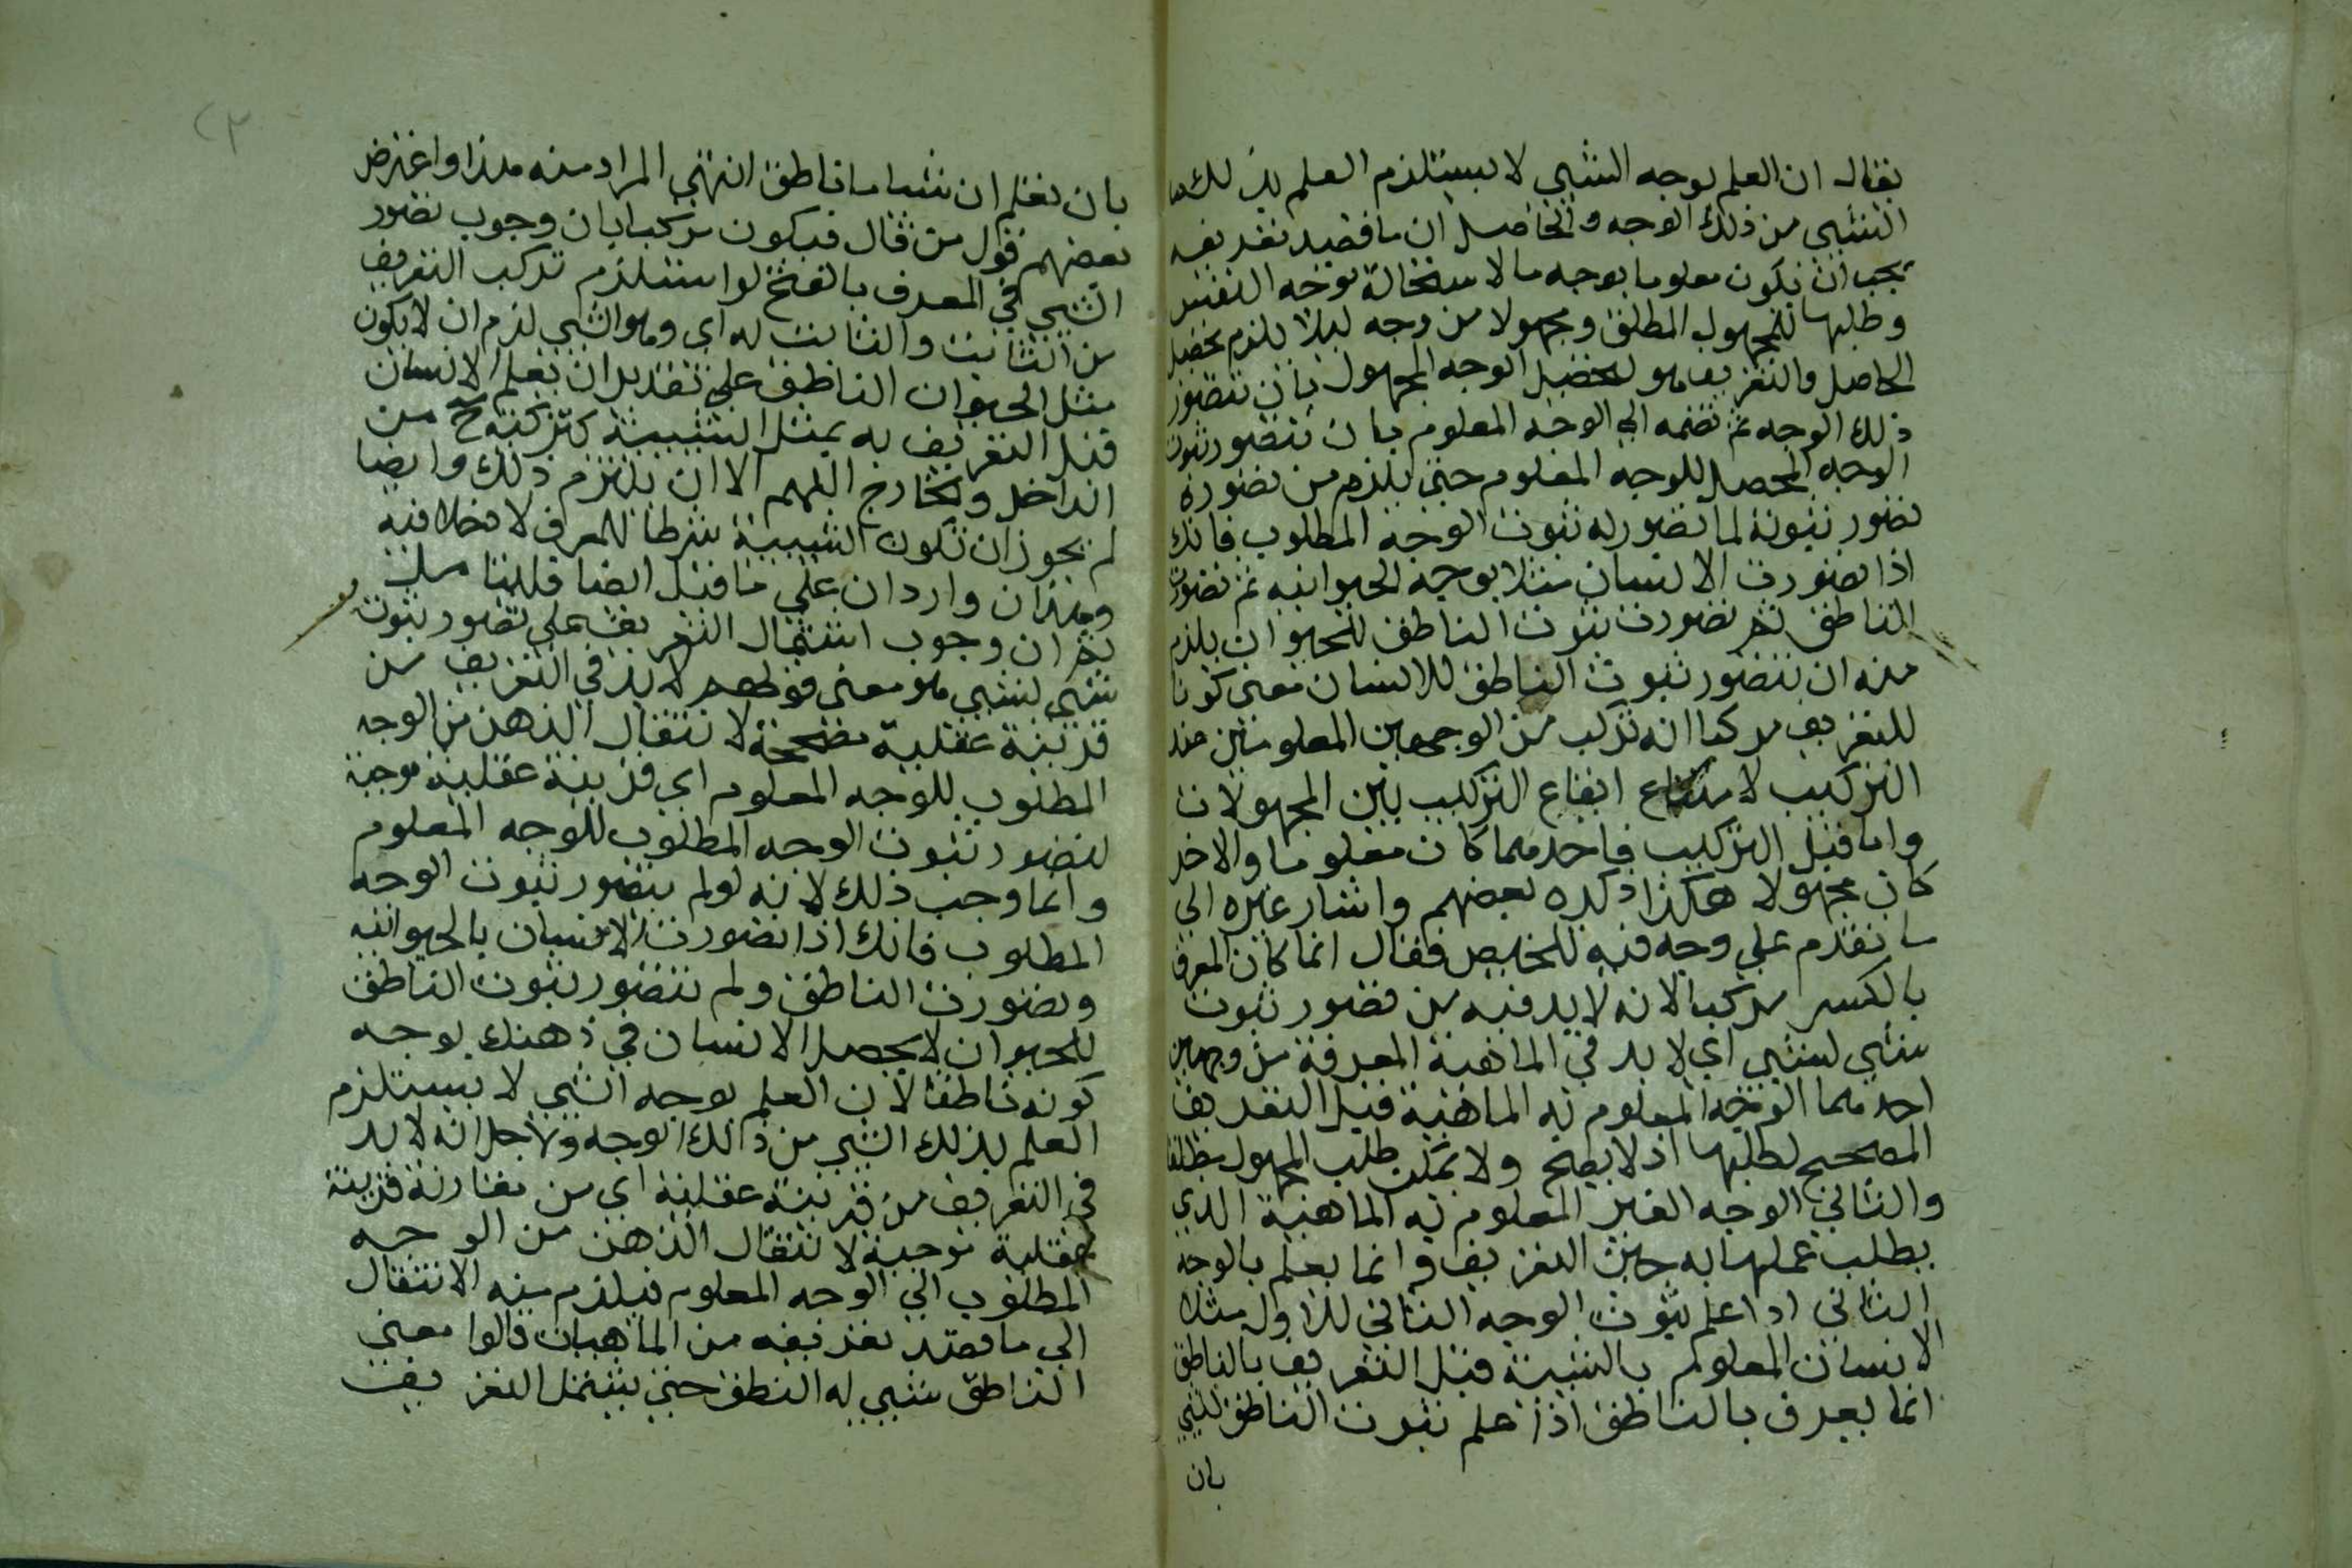 يقال ان العلم بوجه الشيي لا يستلزم العلم بذلك
الشيي من ذلك الوجه والحاصل ان ما قصد تعريفه
يجب ان يكون معلوما بوجه ما لاستحالة توجه النفس
وطلبها للمجهول المطلق ومجهولا من وجه ليلا يلزم تحصيل
الحاصل والتعريف هو لتحصيل الوجه المجهول بان تتصور
ذلك الوجه ثم تضمه الي الوجه المعلوم بان تتصور ثبوت
الوجه المحصل للوجه المعلوم حتي يلزم من تصوره
تصور ثبوته لما تصور له ثبوت الوجه المطلوب فانك
اذا تصورت الانسان مثلا بوجه الحيوانيه ثم تصورت
الناطق ثم تصورت ثبوت الناطق للحيوان يلزم
منه ان تتصور ثبوت الناطق للانسان معني كون
للتعريف مركبا انه تركب من الوجهين المعلومين عند
التركيب لامتناع ايقاع التركيب بين المجهولات
واما قبل التركيب فاحدهما كان معلوما والاخر
كان مجهولا هكذا ذكره بعضهم واشار غيره الي
ما تقدم علي وجه فيه تلخيص فقال انما كان المعرف
بالكسر مركبا لانه لا بد فيه من تصور ثبوت
شيي لشيي اي لا بد في الماهية المعرفة من وجهين
احدهما الوجه المعلوم به الماهية قبل التعريف
المصحح لطلبها اذ لا يصح ولا يمكن طلب المجهول مطلقا
والثاني الوجه الغير المعلوم به الماهية الذي
يطلب عملها به حين التعريف وانما يعلم بالوجه
الثاني اذا علم ثبوت الوجه الثاني للاول مثلا
الانسان المعلوم بالشيية قبل التعريف بالناطق
انما يعرف بالناطق اذا علم ثبوت الناطق للشيي
بان
٢٣
بان تعلم ان شيا ما ناطق انتهي المراد منه هذا واعترض
بعضهم قول من قال فيكون مركبا بان وجوب تصور
الشيي في المعرف بالفتح لو استلزم تركب التعريف
من الثابت والثابت له اي وهو الشيي لزم ان لا يكون
مثل الحيوان الناطق علي تقدير ان يعلم الانسان
قبل التعريف به بمثل الشييية كتركبه ح من
الداخل والخارج اللهم الا ان يلتزم ذلك وايضا
لم يجوز ان تكون الشييية شرطا للمعرف لا دخلا فيه
وهذان واردان علي ما قيل ايضا قلنا
ثم ان وجوب اشتمال التعريف علي تصور ثبوت
شيي لشيي هو معني قولهم لا بد في التعريف من
قرينة عقلية مصححة لانتقال الذهن من الوجه
المطلوب للوجه المعلوم اي قرينة عقلية موجبة
لتصور ثبوت الوجه المطلوب للوجه المعلوم
وانما وجب ذلك لانه لو لم يتصور ثبوت الوجه
المطلوب فانك اذا تصورت الانسان بالحيوانيه
وتصورت الناطق ولم تتصور ثبوت الناطق
للحيوان لا يحصل الانسان في ذهنك بوجه
كونه ناطقا لان العلم بوجه الشيي لا يستلزم
العلم بذلك الشيي من ذالك الوجه ولاجل انه لا بد
في التعريف من قرينة عقلية اي من مقارنة قرينة
عقلية موجبة لانتقال الذهن من الوجه
المطلوب الي الوجه المعلوم فيلزم منه الانتقال
الي ما قصد تعريفه من الماهيات قالوا معني
الناطق شيي له النطق حتي يشتمل التعريف